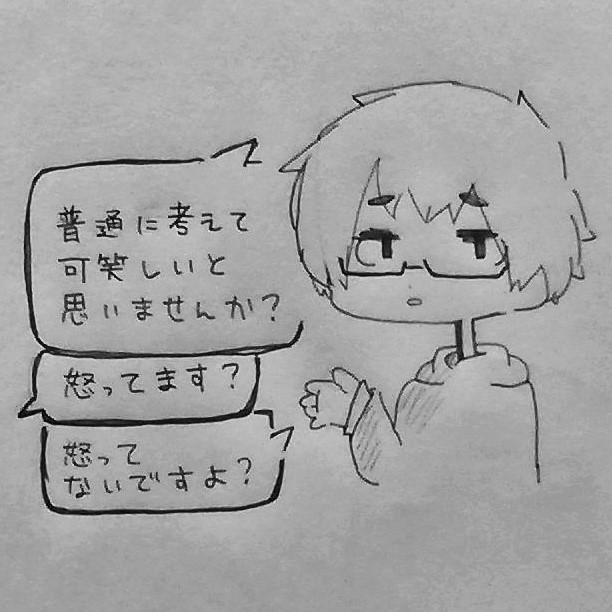 普通に考えて
可笑しいと
思いませんか?
怒ってます?
怒って
ないですよ?